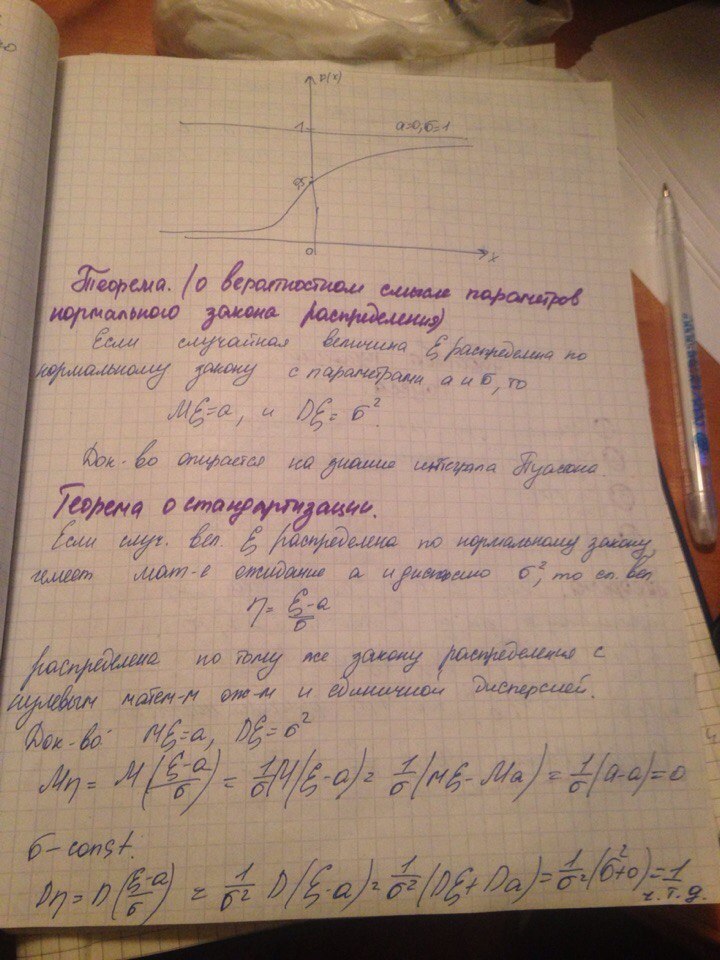 1
a=0, σ=1
0,5
0
x
Теорема. (о вероятностном смысле параметров
нормального закона распределения)
Если случайная величина ξ распределена по
нормальному закону с параметрами a и σ, то
Mξ=a, и Dξ=σ².
Док-во опирается на знание интеграла Пуассона.
Теорема о стандартизации.
Если случ. вел. ξ распределена по нормальному закону,
имеет мат-е ожидание a и дисперсию σ², то сл. вел.
η = (ξ-a)/σ
распределена по тому же закону распределения с
нулевым матем-м ож-м и единичной дисперсией.
Док-во: Mξ=a, Dξ=σ²
Mη = M((ξ-a)/σ) = 1/σ M(ξ-a) = 1/σ (Mξ-Ma) = 1/σ (a-a) = 0
σ-const.
Dη = D((ξ-a)/σ) = 1/σ² D(ξ-a) = 1/σ² (Dξ+Da) = 1/σ² (σ²+0) = 1
ч.т.д.